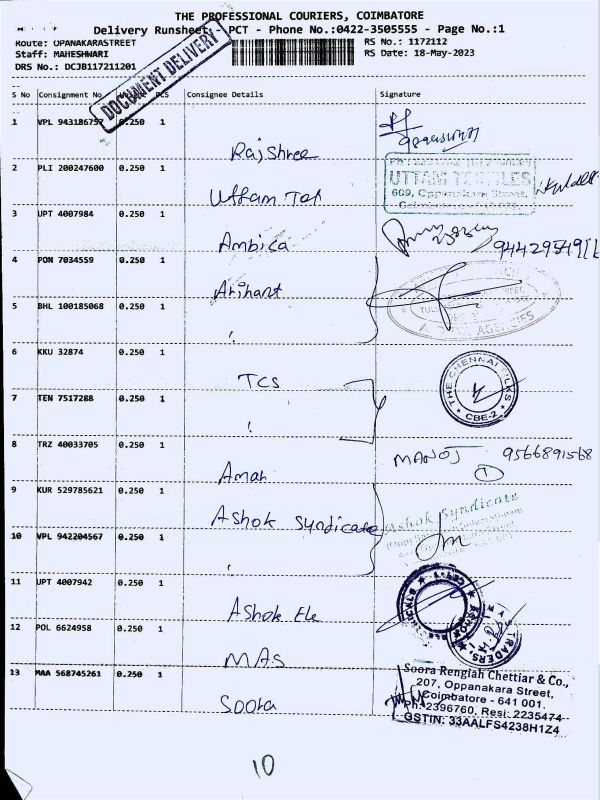 THE PROFESSIONAL COURIERS, COIMBATORE
Delivery Runsheet - PCT - Phone No.:0422-3505555 - Page No.:1
Route: OPANAKARASTREET
RS No.: 1172112
Staff: MAHESHWARI
RS Date: 18-May-2023
DRS No.: DCJB117211201
DOCUMENT DELIVERY
S No Consignment No PCS Consignee Details Signature
1 VPL 943186757 0.250 1 Rajshree
2 PLI 200247600 0.250 1 Uttam Tex
UTTAM TEXTILES
609, Oppanakara Street,
3 UPT 4007984 0.250 1 Ambica
4 PON 7034559 0.250 1 Arihant
5 BHL 100185068 0.250 1 "
AGENCIES
6 KKU 32874 0.250 1 TCS
7 TEN 7517288 0.250 1 "
THE CHENNAI SILKS
CBE-2
8 TRZ 40033705 0.250 1 Aman MANOJ 9566891568
1
9 KUR 529785621 0.250 1 Ashok Syndicate
Ashok Syndicate
10 VPL 942204567 0.250 1 "
11 UPT 4007942 0.250 1 Ashok Ele
12 POL 6624958 0.250 1 MAS
TRADERS
13 MAA 568745261 0.250 1 Soora
Soora Rengiah Chettiar & Co.,
207, Oppanakara Street,
Coimbatore - 641 001.
Ph: 2396760, Resi: 2235474
GSTIN: 33AALFS4238H1Z4
10